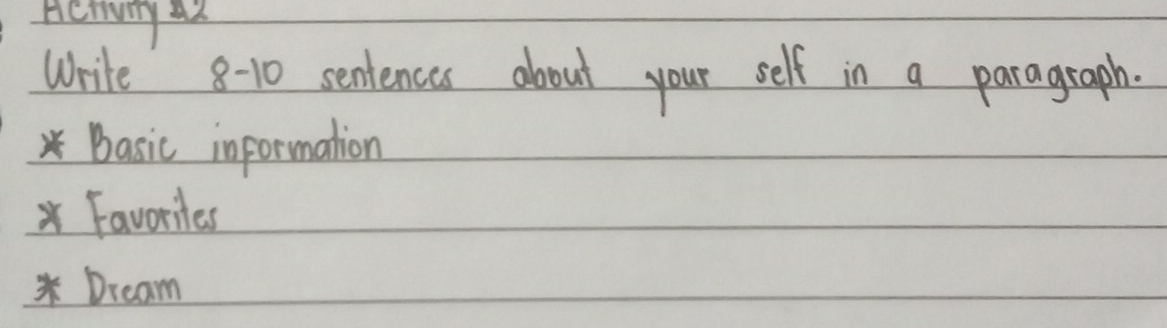 Activity #2
Write 8-10 sentences about your self in a paragraph.
* Basic information
* Favorites
* Dream